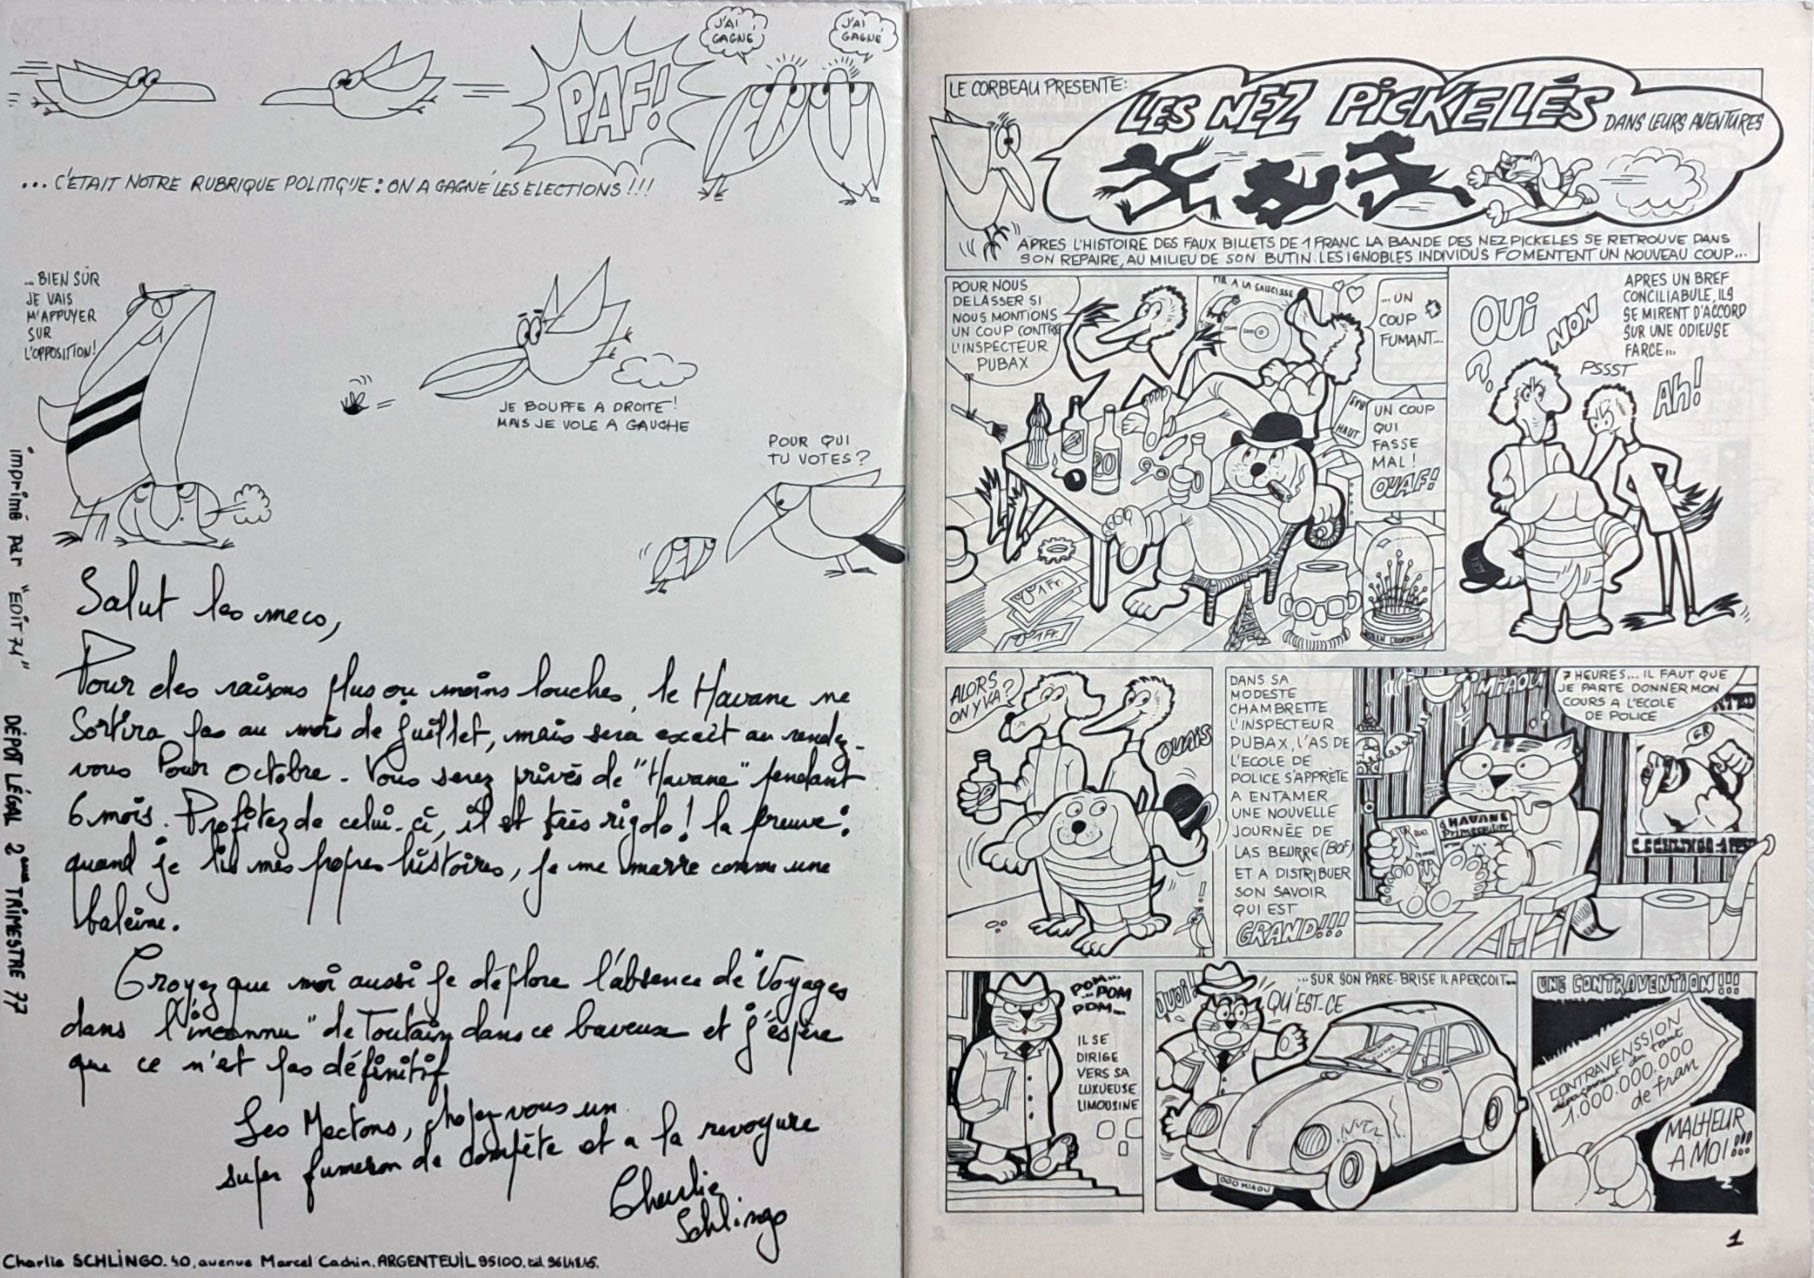 PAF!
J'AI
GAGNÉ
J'AI
GAGNÉ
... C'ÉTAIT NOTRE RUBRIQUE POLITIQUE : ON A GAGNÉ LES ELECTIONS !!!
... BIEN SÛR
JE VAIS
M'APPUYER
SUR
L'OPPOSITION!
JE BOUFFE A DROITE!
MAIS JE VOLE A GAUCHE
POUR QUI
TU VOTES?
Salut les mecs,
Pour des raisons plus ou moins louches, le Havane ne
Sortira pas au mois de juillet, mais sera exact au rendez-
vous Pour octobre. Vous serez privés de "Havane" pendant
6 mois. Profitez de celui-ci, il est très rigolo! la preuve:
quand je lis mes propres histoires, je me marre comme une
baleine.
Croyez que moi aussi je déplore l'absence de "Voyages
dans l'inconnu" de Toutain dans ce baveux et j'espère
que ce n'est pas définitif
Les Mectons, chopez-vous un
super fumeron de compète et a la revoyure
Charlie
Schlingo
imprimé par "EDIT 71" DÉPÔT LÉGAL 2eme TRIMESTRE 77
Charlie SCHLINGO. 40, avenue Marcel Cachin. ARGENTEUIL 95100. tél.
LE CORBEAU PRESENTE:
LES NEZ PICKELÉS
DANS LEURS AVENTURES
APRES L'HISTOIRE DES FAUX BILLETS DE 1 FRANC LA BANDE DES NEZ PICKELES SE RETROUVE DANS
SON REPAIRE, AU MILIEU DE SON BUTIN. LES IGNOBLES INDIVIDUS FOMENTENT UN NOUVEAU COUP...
POUR NOUS
DELASSER SI
NOUS MONTIONS
UN COUP CONTRE
L'INSPECTEUR
PUBAX
TIR A LA SAUCISSE
... UN
COUP
FUMANT...
HAUT
UN COUP
QUI
FASSE
MAL!
OUAF!
20
1 Fr.
1 Fr.
OUI
NON
?
PSSST
Ah!
APRES UN BREF
CONCILIABULE, ILS
SE MIRENT D'ACCORD
SUR UNE ODIEUSE
FARCE...
ALORS
ON Y VA?
OUAIS
DANS SA
MODESTE
CHAMBRETTE
L'INSPECTEUR
PUBAX, L'AS DE
L'ECOLE DE
POLICE S'APPRÈTE
A ENTAMER
UNE NOUVELLE
JOURNÉE DE
LAS BEURRE (BOF)
ET A DISTRIBUER
SON SAVOIR
QUI EST
GRAND!!!
MIAOU
7 HEURES... IL FAUT QUE
JE PARTE DONNER MON
COURS A L'ECOLE
DE POLICE
HAVANE
GR
C. SCHLINGO
POM...
...POM
POM...
IL SE
DIRIGE
VERS SA
LUXUEUSE
LIMOUSINE
QUOI!
QU'EST-CE
...SUR SON PARE-BRISE IL APERÇOIT...
000 MIAOU
UNE CONTRAVENTION!!!
CONTRAVENSSION
1.000.000.000
de fran
MALHEUR
A MOI!!!
1